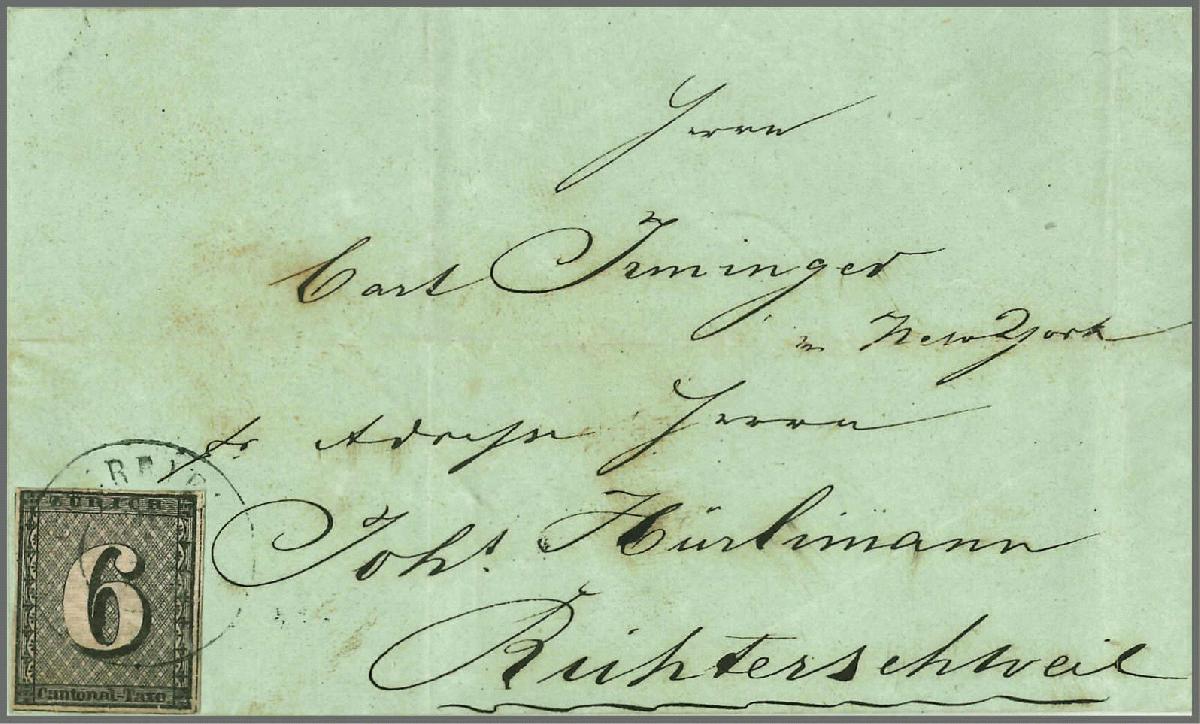 Herrn
Carl Irminger
in New York
pr Adresse Herrn
Johs. Hürlimann
Richterschweil
ZÜRICH
6
Cantonal-Taxe